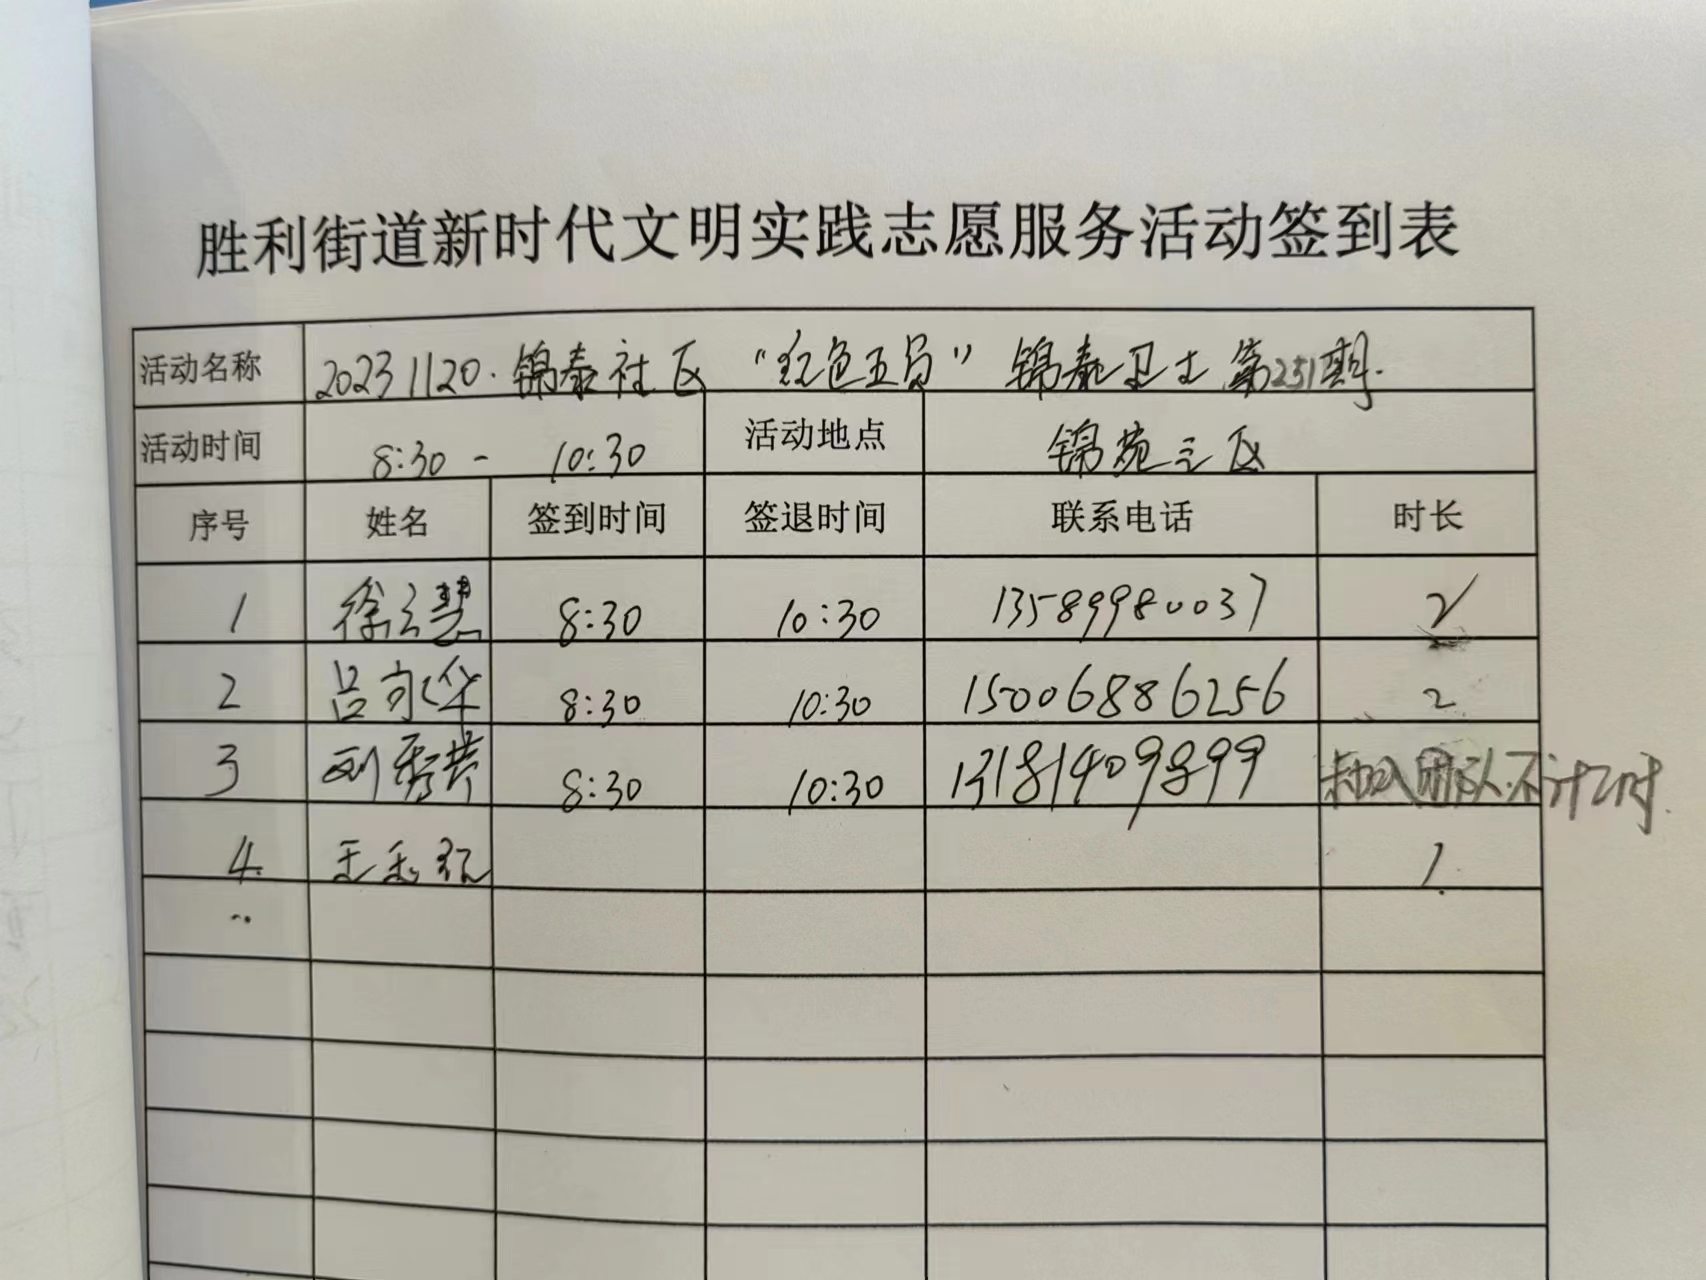 胜利街道新时代文明实践志愿服务活动签到表
活动名称 20231120·锦泰社区“红色五员”锦泰卫士第251期.
活动时间 8:30 - 10:30 活动地点 锦苑三区
序号 姓名 签到时间 签退时间 联系电话 时长
1 徐云慧 8:30 10:30 13589980037 2
2 吕永华 8:30 10:30 15006886256 2
3 刘秀英 8:30 10:30 13181409899 未加入团队.不计工时.
4. 王 红 1.